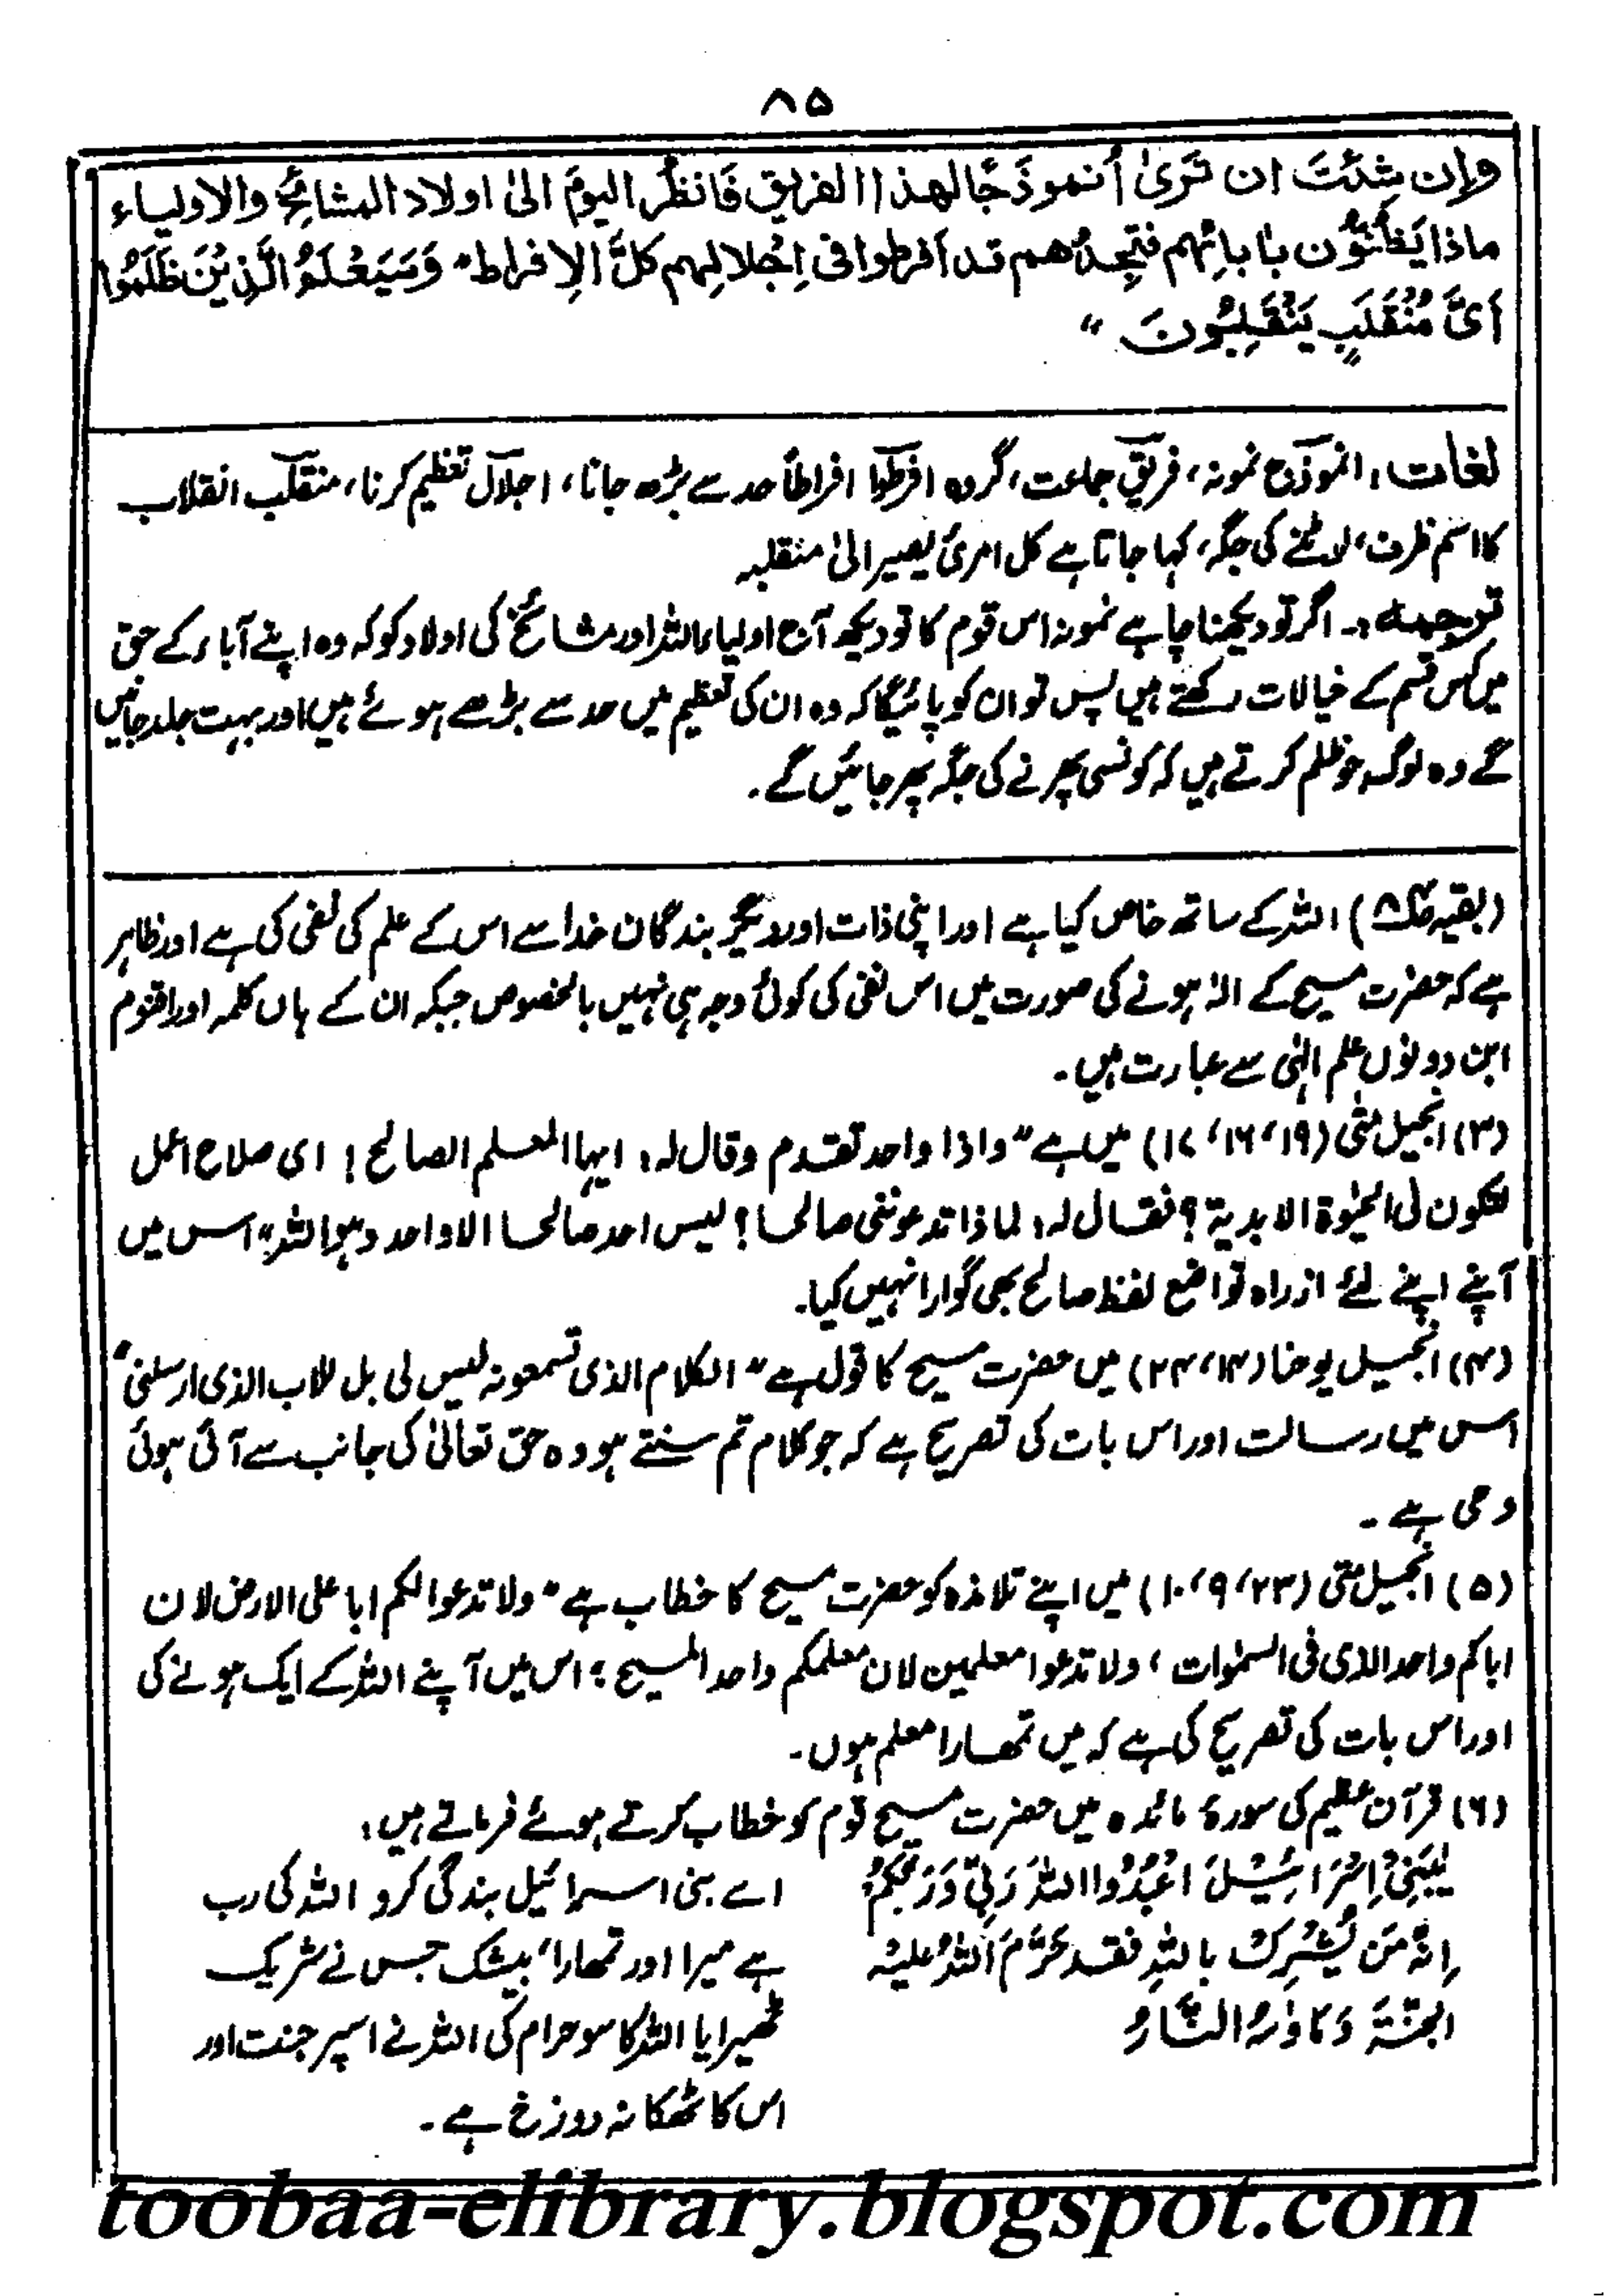 ۸۵
وإن شِئْتَ ان تَرىٰ أُنموذَجًا لهذا الفريق فَانظُر اليومَ الىٰ اولاد المشائخ والاولیاء
ماذا يَظُنُّون بآبائهم فتجدُهم قد أفرطوا فى اِجلالِهم كلَّ الإفراط" وَسَيَعْلَمُ الَّذِيْنَ ظَلَمُوا
اَىَّ مُنْقَلَبٍ يَنْقَلِبُونَ "
لغات، انموذج نمونہ، فریق جماعت، گروہ افرطوا افراطاً حد سے بڑھ جانا، اجلال تعظیم کرنا، منقلب انقلاب
کا اسم ظرف، لوٹنے کی جگہ، کہا جاتا ہے کل امرئ یصیر الیٰ منقلبہ
ترجمہ :۔ اگر تو دیکھنا چاہے نمونہ اس قوم کا تو دیکھ آج اولیاء اللہ اور مشائخ کی اولاد کو کہ وہ اپنے آباء کے حق
میں کس قسم کے خیالات رکھتے ہیں پس تو ان کو پائیگا کہ وہ ان کی تعظیم میں حد سے بڑھے ہوئے ہیں اور بہت جلد جانیں
گے وہ لوگ جو ظلم کرتے ہیں کہ کونسی پھرنے کی جگہ پھر جائیں گے .
(بقیہ ) اللہ کے ساتھ خاص کیا ہے اور اپنی ذات اور دیگر بندگان خدا سے اس کے علم کی نفی کی ہے اور ظاہر
ہے کہ حضرت مسیح کے الٰہ ہونے کی صورت میں اس نفی کی کوئی وجہ ہی نہیں بالخصوص جبکہ ان کے ہاں کلمہ اور اقنوم
ابن دونوں علم الٰہی سے عبارت ہیں ۔
(۳) انجیل متی (۱۹، ۱۶، ۱۷) میں ہے "واذا واحد تقدم وقال لہ، ایہا المعلم الصالح! ای صلاح اعمل
لتکون لی الحیٰوۃ الابدیۃ؟ فقال لہ، لماذا تدعوننی صالحا؟ لیس احد صالحا الا واحد وہو اللہ" اس میں
آپنے اپنے لئے ازراہ تواضع لفظ صالح بھی گوارا نہیں کیا۔
(۴) انجیل یوحنا (۱۴، ۲۴) میں حضرت مسیح کا قول ہے "الکلام الذی تسمعونہ لیس لی بل للاب الذی ارسلنی"
اس میں رسالت اور اس بات کی تصریح ہے کہ جو کلام تم سنتے ہو وہ حق تعالیٰ کی جانب سے آئی ہوئی
وحی ہے ۔
(۵) انجیل متی (۲۳، ۹، ۱۰) میں اپنے تلامذہ کو حضرت مسیح کا خطاب ہے "ولا تدعوا لکم ابا علی الارض لان
اباکم واحد الذی فی السمٰوات، ولا تدعوا معلمین لان معلمکم واحد المسیح؛ اس میں آپنے اللہ کے ایک ہونے کی
اور اس بات کی تصریح کی ہے کہ میں تمھارا معلم ہوں۔
(۶) قرآن عظیم کی سورۂ مائدہ میں حضرت مسیح قوم کو خطاب کرتے ہوئے فرماتے ہیں،
يٰبَنِىْ اِسْرَائِيْلَ اعْبُدُوا اللهَ رَبِّىْ وَرَبَّكُمْ
اِنَّهٗ مَنْ يُّشْرِكْ بِاللهِ فَقَدْ حَرَّمَ اللهُ عَلَيْهِ
الْجَنَّةَ وَمَاْوٰىهُ النَّارُ
اے بنی اسرائیل بندگی کرو اللہ کی رب
ہے میرا اور تمھارا، بیشک جس نے شریک
ٹھیرایا اللہ کا سو حرام کی اللہ نے اسپر جنت اور
اس کا ٹھکانہ دوزخ ہے ۔
toobaa-elibrary.blogspot.com